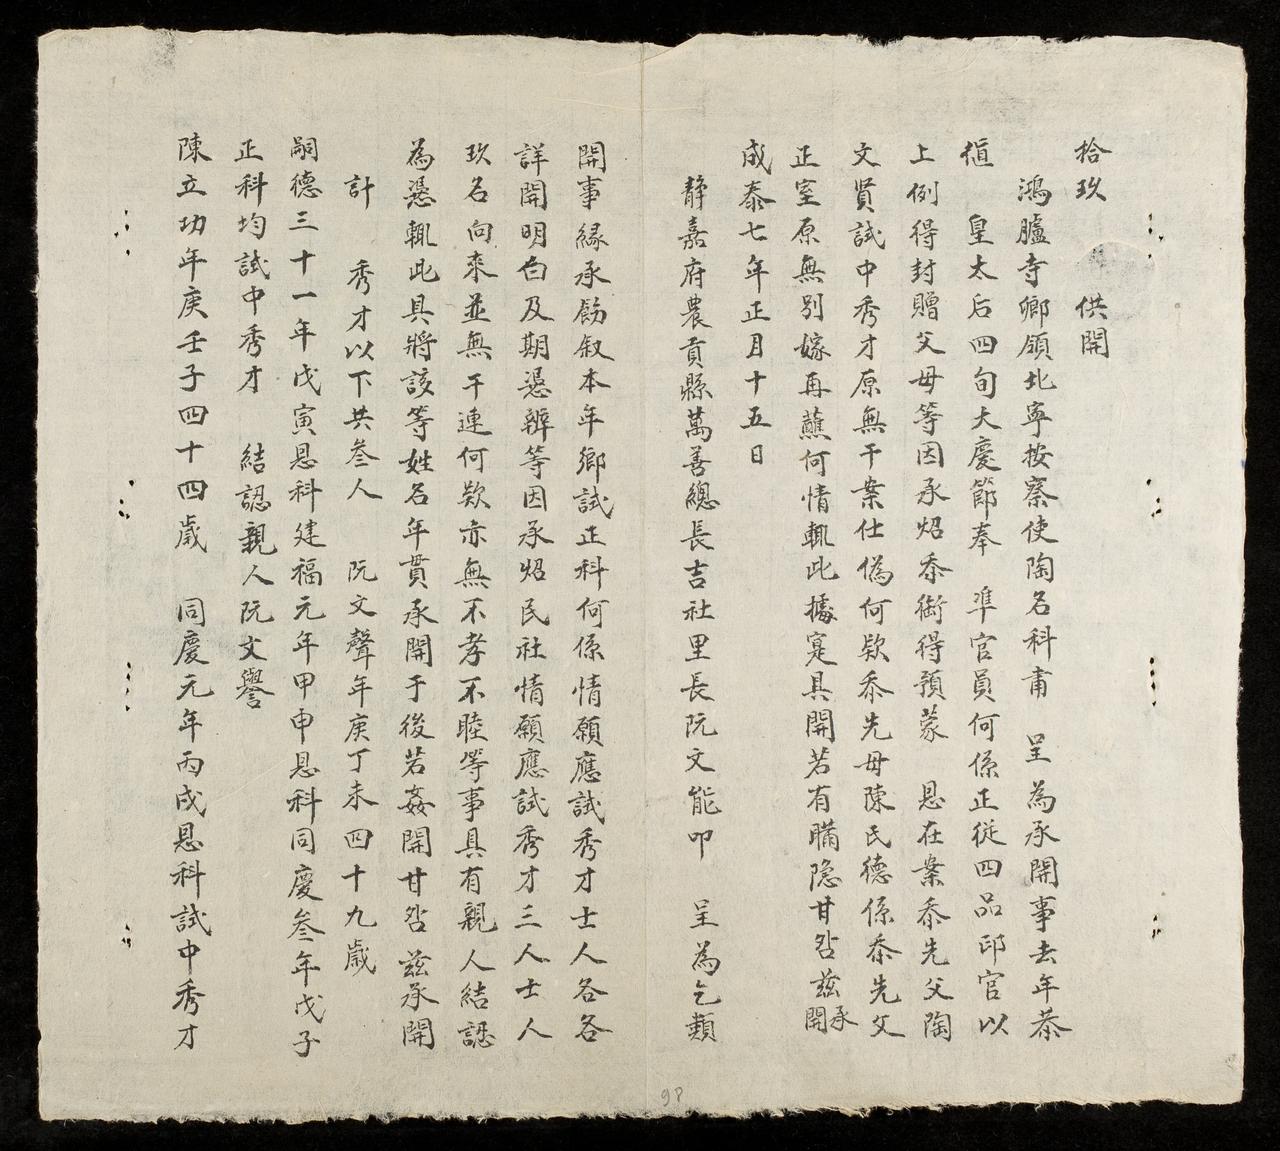 拾玖　　供開
鴻臚寺卿領北寧按察使陶名科甫　呈為承開事去年恭
值　皇太后四旬大慶節奉　準官員何係正從四品印官以
上例得封贈父母等因承炤忝銜得預蒙　恩在案忝先父陶
文賢試中秀才原無干案仕偽何欵忝先母陳氏德係忝先父
正室原無別嫁再蘸何情輒此據寔具開若有瞞隐甘咎茲承開
成泰七年正月十五日
静嘉府農貢縣萬善總長吉社里長阮文能叩　呈為乞類
開事緣承飭叙本年鄉試正科何係情願應試秀才士人各各
詳開明白及期憑辨等因承炤民社情願應試秀才三人士人
玖名向來並無干連何欵亦無不孝不睦等事具有親人結認
為憑輒此具將該等姓名年貫承開于後若姦開甘咎茲承開
計　秀才以下共叁人　阮文聲年庚丁未四十九歲
嗣德三十一年戊寅恩科建福元年甲申恩科同慶叁年戊子
正科均試中秀才　結認親人阮文譽
陳立功年庚壬子四十四歲　同慶元年丙戌恩科試中秀才
98